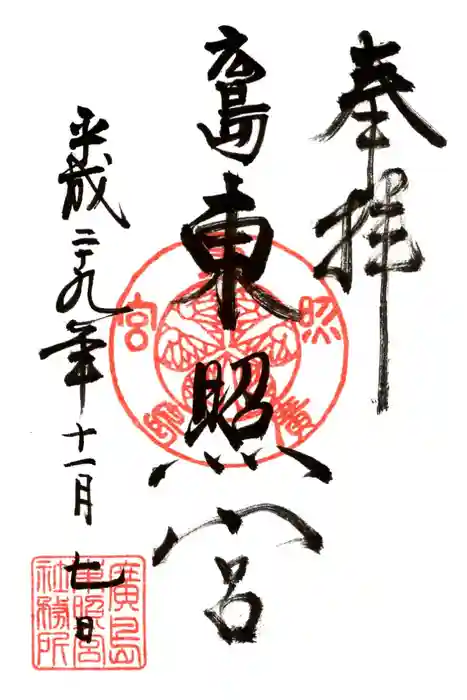 奉拝
広島東照宮
平成二十九年十一月七日
廣島
東照宮
社務所